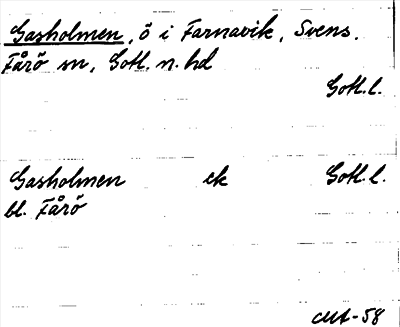 Gasholmen, ö i Farnavik, Svens,
Fårö sn, Gotl. n. hd
Gotl. l.
Gasholmen ek Gotl. l.
bl. Fårö
-58